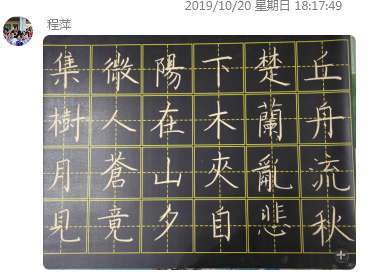 2019/10/20 星期日 18:17:49
程萍
集微陽下楚丘
樹人在木蘭舟
月蒼山夾亂流
見竟夕自悲秋